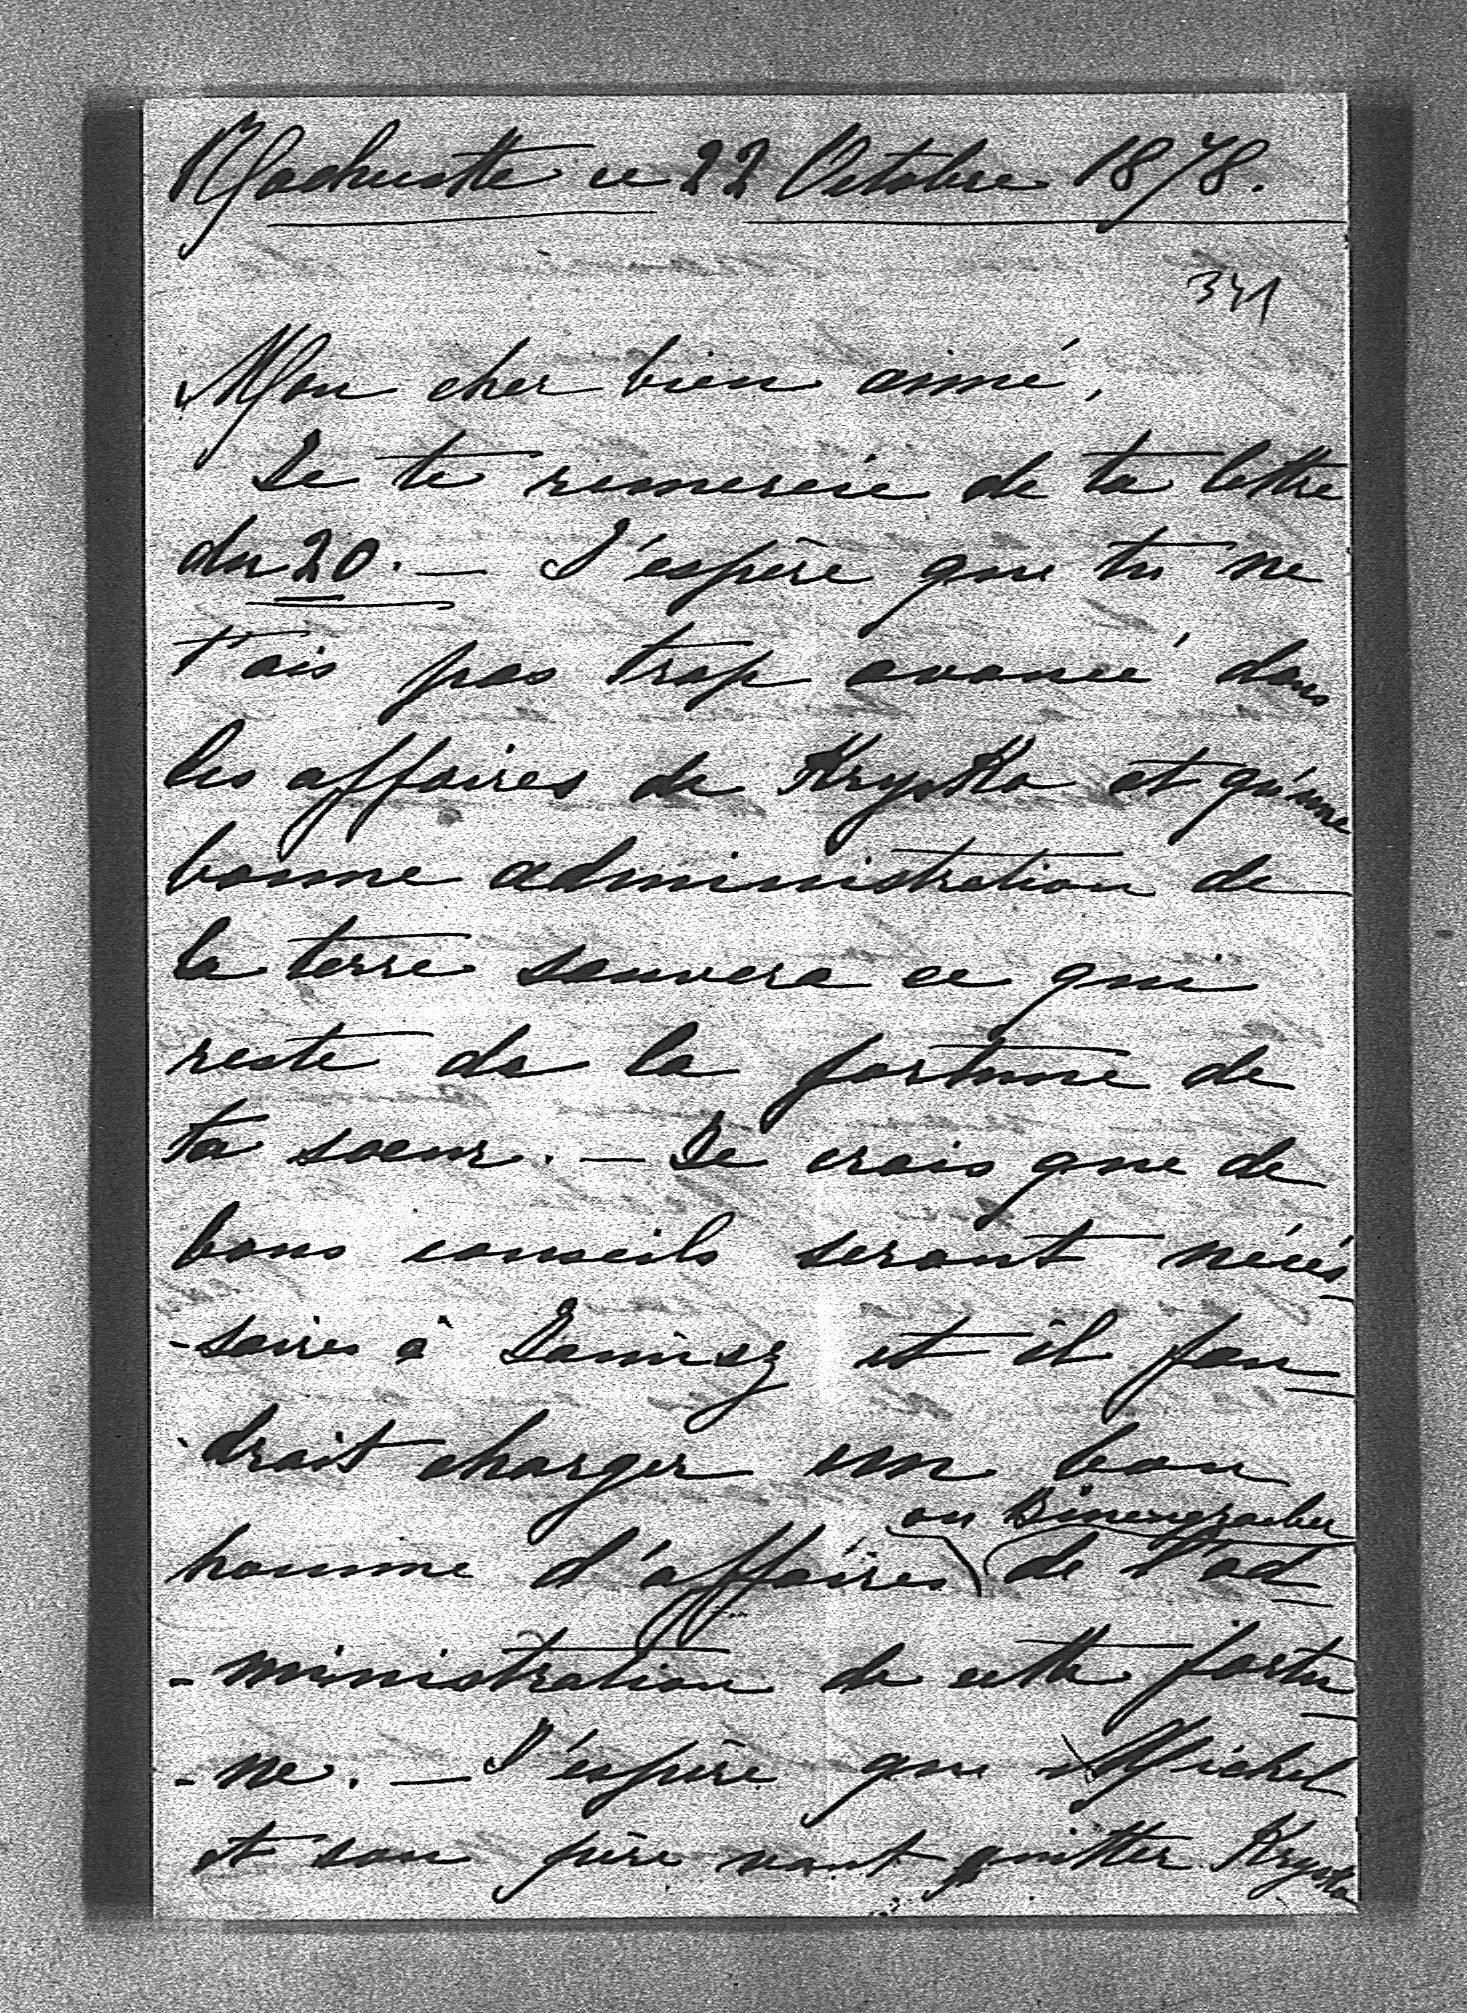 ce 22 Octobre 1878.
341
Mon cher bien aimé,
Je te remercie de ta lettre
du 20. — J'espère que tu ne
t'ais pas trop avancé dans
les affaires de Kryska et qu'une
bonne administration de
la terre sauvera ce qui
reste de la fortune de
ta soeur. — Je crois que de
bons conseils seront nécés
-saires à et il fau
-drait charger un bon
ou
homme d'affaires de l'ad
-ministration de cette fortu
-ne. — J'espère que Michel
et son père vont quitter Kryska